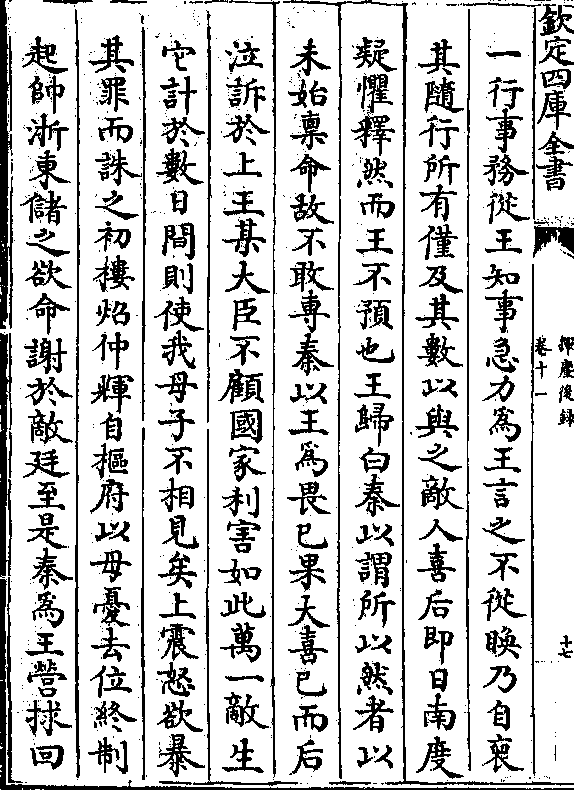 欽定四庫全書
揮麈後錄
卷十一
十七
一行事務從王知事急力為王言之不從晱乃自裒
其隨行所有僅及其數以與之敵人喜后即日南度
疑懼釋然而王不預也王歸白秦以謂所以然者以
未始禀命故不敢專秦以王為畏已果大喜已而后
泣訴於上王某大臣不顧國家利害如此萬一敵生
它計於數日間則使我母子不相見矣上震怒欲暴
其罪而誅之初樓炤仲輝自樞府以母憂去位終制
起帥浙東儲之欲命謝於敵廷至是秦為王營捄回